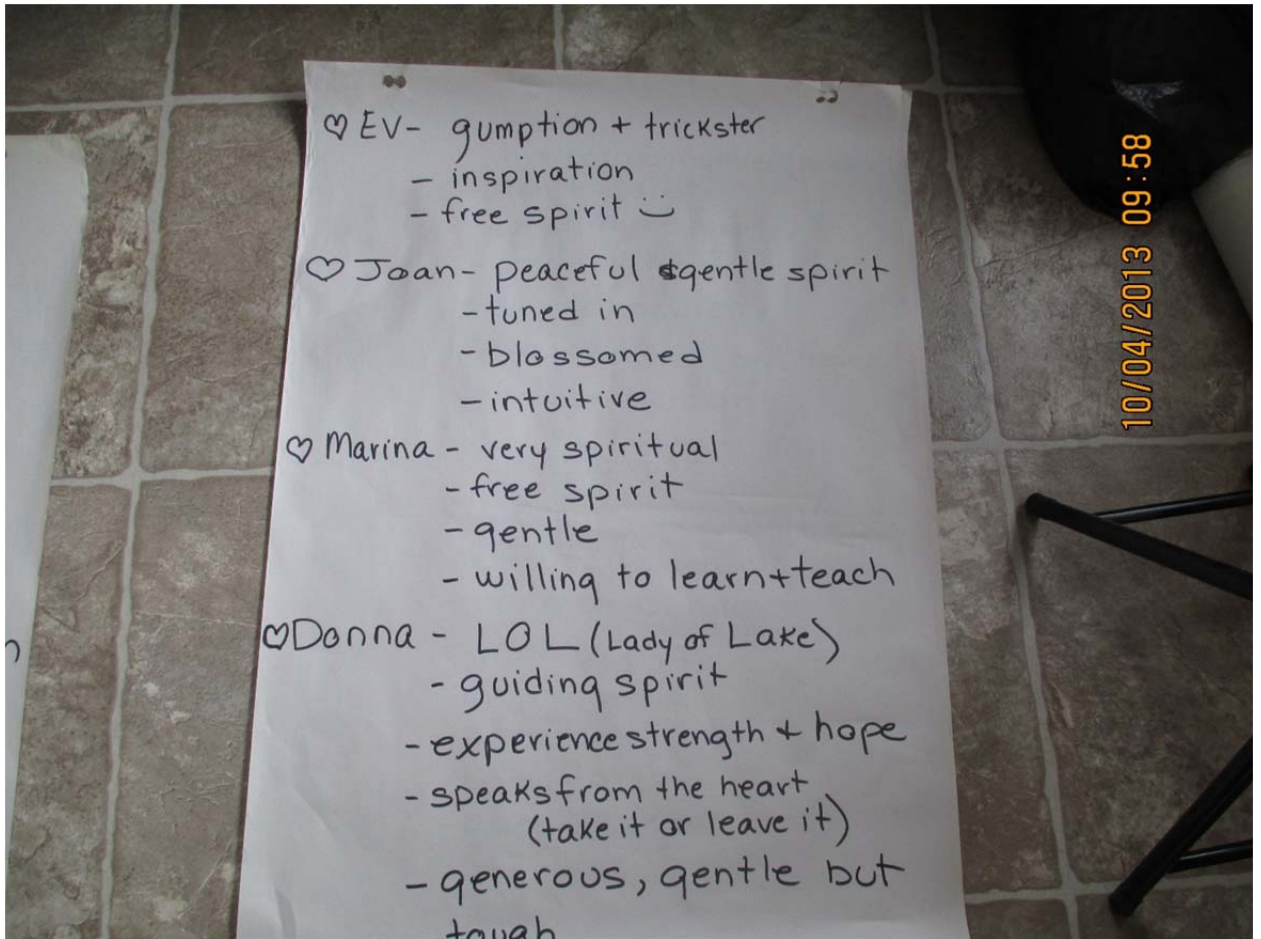 ♡ EV- gumption + trickster
- inspiration
- free spirit
♡ Joan- peaceful & gentle spirit
- tuned in
- blossomed
- intuitive
♡ Marina - very spiritual
- free spirit
- gentle
- willing to learn + teach
♡ Donna - LOL (Lady of Lake)
- guiding spirit
- experience strength + hope
- speaks from the heart
(take it or leave it)
- generous, gentle but
tough
10/04/2013 09:58